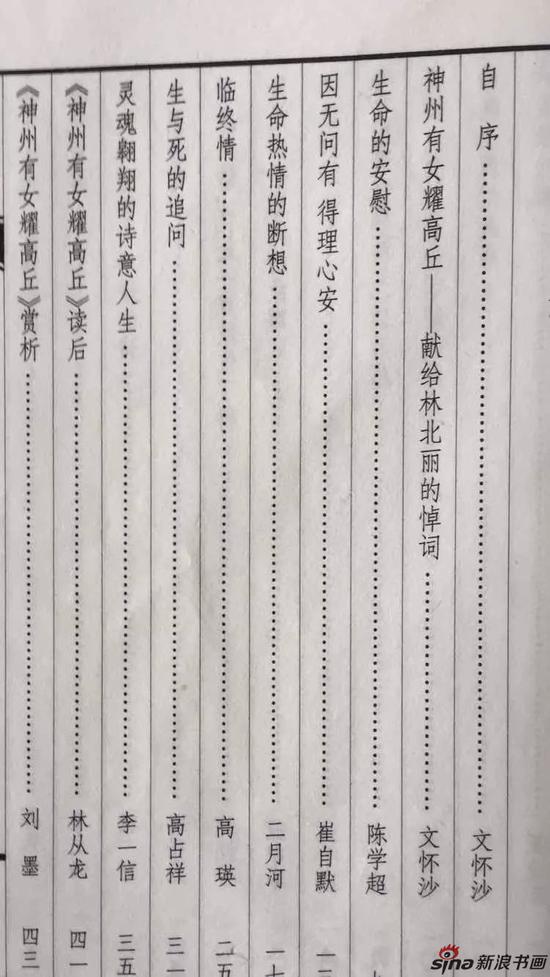 自序……文怀沙
神州有女耀高丘——献给林北丽的悼词……文怀沙
生命的安慰……陈学超
因无问有 得理心安……崔自默
生命热情的断想……二月河 一七
临终情……高瑛 二五
生与死的追问……高占祥 三一
灵魂翱翔的诗意人生……李一信 三五
《神州有女耀高丘》读后……林从龙 四一
《神州有女耀高丘》赏析……刘墨 四三
sina新浪书画